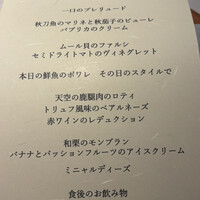 一口のプレリュード
秋刀魚のマリネと秋茄子のピューレ
パプリカのクリーム
ムール貝のファルシ
セミドライトマトのヴィネグレット
本日の鮮魚のポワレ その日のスタイルで
天空の鹿腿肉のロティ
トリュフ風味のベアルネーズ
赤ワインのレデュクション
和栗のモンブラン
バナナとパッションフルーツのアイスクリーム
ミニャルディーズ
食後のお飲み物